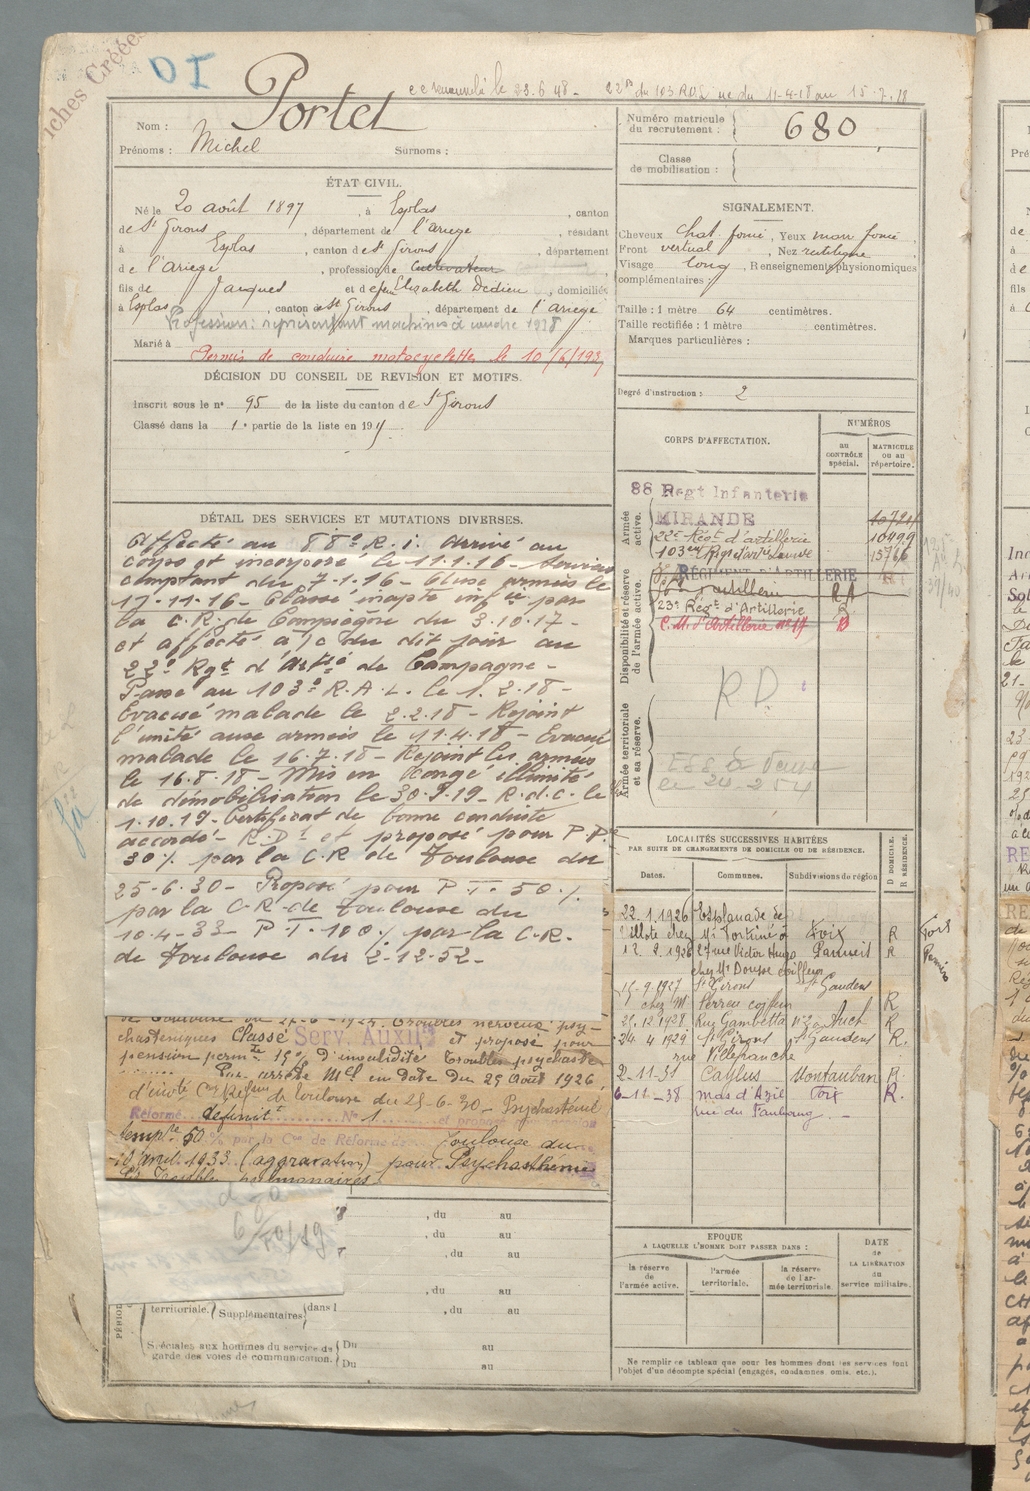 iches Créées
DI
Portet
c c renouvelé le 23.6.48 - 22e du 103 RAL ue du 11-4-18 au 15.7.18
Nom :
Prénoms : Michel Surnoms :
Numéro matricule du recrutement : 680
Classe de mobilisation :
ÉTAT CIVIL.
Né le 20 août 1897, à Esplas, canton
de St Girons, département de l'ariège, résidant
à Esplas, canton de St Girons, département
de l'ariège, profession de Cultivateur
fils de Jacques et de feu Elisabeth Dedieu, domiciliés
à Esplas, canton de St Girons, département de l'ariège
Profession : représentant machines à coudre 1928
Marié à
Permis de conduire motocyclettes le 10/6/193
SIGNALEMENT.
Cheveux chat. foncé, Yeux mar. foncé,
Front vertical, Nez rectiligne
Visage long, Renseignements physionomiques
complémentaires :
Taille : 1 mètre 64 centimètres.
Taille rectifiée : 1 mètre centimètres.
Marques particulières :
Degré d'instruction : 2
DÉCISION DU CONSEIL DE REVISION ET MOTIFS.
Inscrit sous le n° 95 de la liste du canton de St Girons
Classé dans la 1e partie de la liste en 191
DÉTAIL DES SERVICES ET MUTATIONS DIVERSES.
Affecté au 88e R.i. Arrivé au
corps et incorporé le 11.1.16 - Services
comptant du 7-1-16 - Aux armées le
17-11-16 - Classé inapte infie par
la C.R. de Compiègne du 3.10.17 -
et affecté à/c du dit jour au
22e Rgt d'Artie de Campagne -
Passé au 103e R.A.L. le 1.2.18 -
Evacué malade le 2.2.18 - Rejoint
l'unité aux armées le 11.4.18 - Evacué
malade le 16.7.18 - Rejoint les armées
le 16.8.18 - Mis en Congé illimité
de démobilisation le 30.9.19 - R.d.c. le
1.10.19 - Certificat de bonne conduite
accordé - R.D. et proposé pour P.P.
30% par la C.R de Toulouse du
25-6-30 - Proposé pour P.T. 50%
par la C.R. de Toulouse du
10-4-33 - P.T. 100% par la C.R.
de Toulouse du 2-12-52 -
Troubles nerveux psy-
chasteniques Classé Serv. Auxil. et proposé pour
pension permte 15% d'invalidité troubles psychaste
Par arrêté Mel en date du 29 Août 1926
de Toulouse du 25-6-30 - Psychasténie
Réformé définit N° 1 et proposé
tempre 50% par la Con de Réforme de Toulouse du
10 avril 1933 (aggravation) pour Psychasthenie
CORPS D'AFFECTATION.
NUMÉROS
au CONTRÔLE spécial.
MATRICULE ou au répertoire.
Armée active.
88 Regt Infanterie
MIRANDE 10724
22e Rég. d'artillerie 10499
103em Régt d'artie Lourde 15746
Disponibilité et réserve de l'armée active.
RÉGIMENT D'ARTILLERIE
artillerie
23e Régt d'Artillerie
C.M. d'Artillerie n° 17
R.D.
Armée territoriale et sa réserve.
le 24.2.54
LOCALITÉS SUCCESSIVES HABITÉES
PAR SUITE DE CHANGEMENTS DE DOMICILE OU DE RÉSIDENCE.
Dates. Communes. Subdivisions de région D DOMICILE. R RÉSIDENCE.
22.1.1926 Esplanade de
Villote chez Mr Fortuné à Foix R
12.2.1926 27 rue Victor Hugo R
chez Mr Dousse coiffeur
15-9-1927 St Girons St Gaudens
chez M Perreu coiffeur R
29.12.1928 Rue Gambetta Auch R
24.4.1929 St Girons St Gaudens R.
rue Villefranche
2-11-31 Caylus Montauban R.
6-11-38 mas d'Azil Foix R.
rue du Faubourg
EPOQUE
A LAQUELLE L'HOMME DOIT PASSER DANS :
la réserve de l'armée active.
l'armée territoriale.
la réserve de l'armée territoriale.
DATE de LA LIBÉRATION du service militaire.
, du au
, du au
, du au
, du au
territoriale. Supplémentaires dans l , du au
Spéciales aux hommes du service de garde des voies de communication.
Du au
Du au
Ne remplir ce tableau que pour les hommes dont les services font
l'objet d'un décompte spécial (engagés, condamnés, omis, etc.).